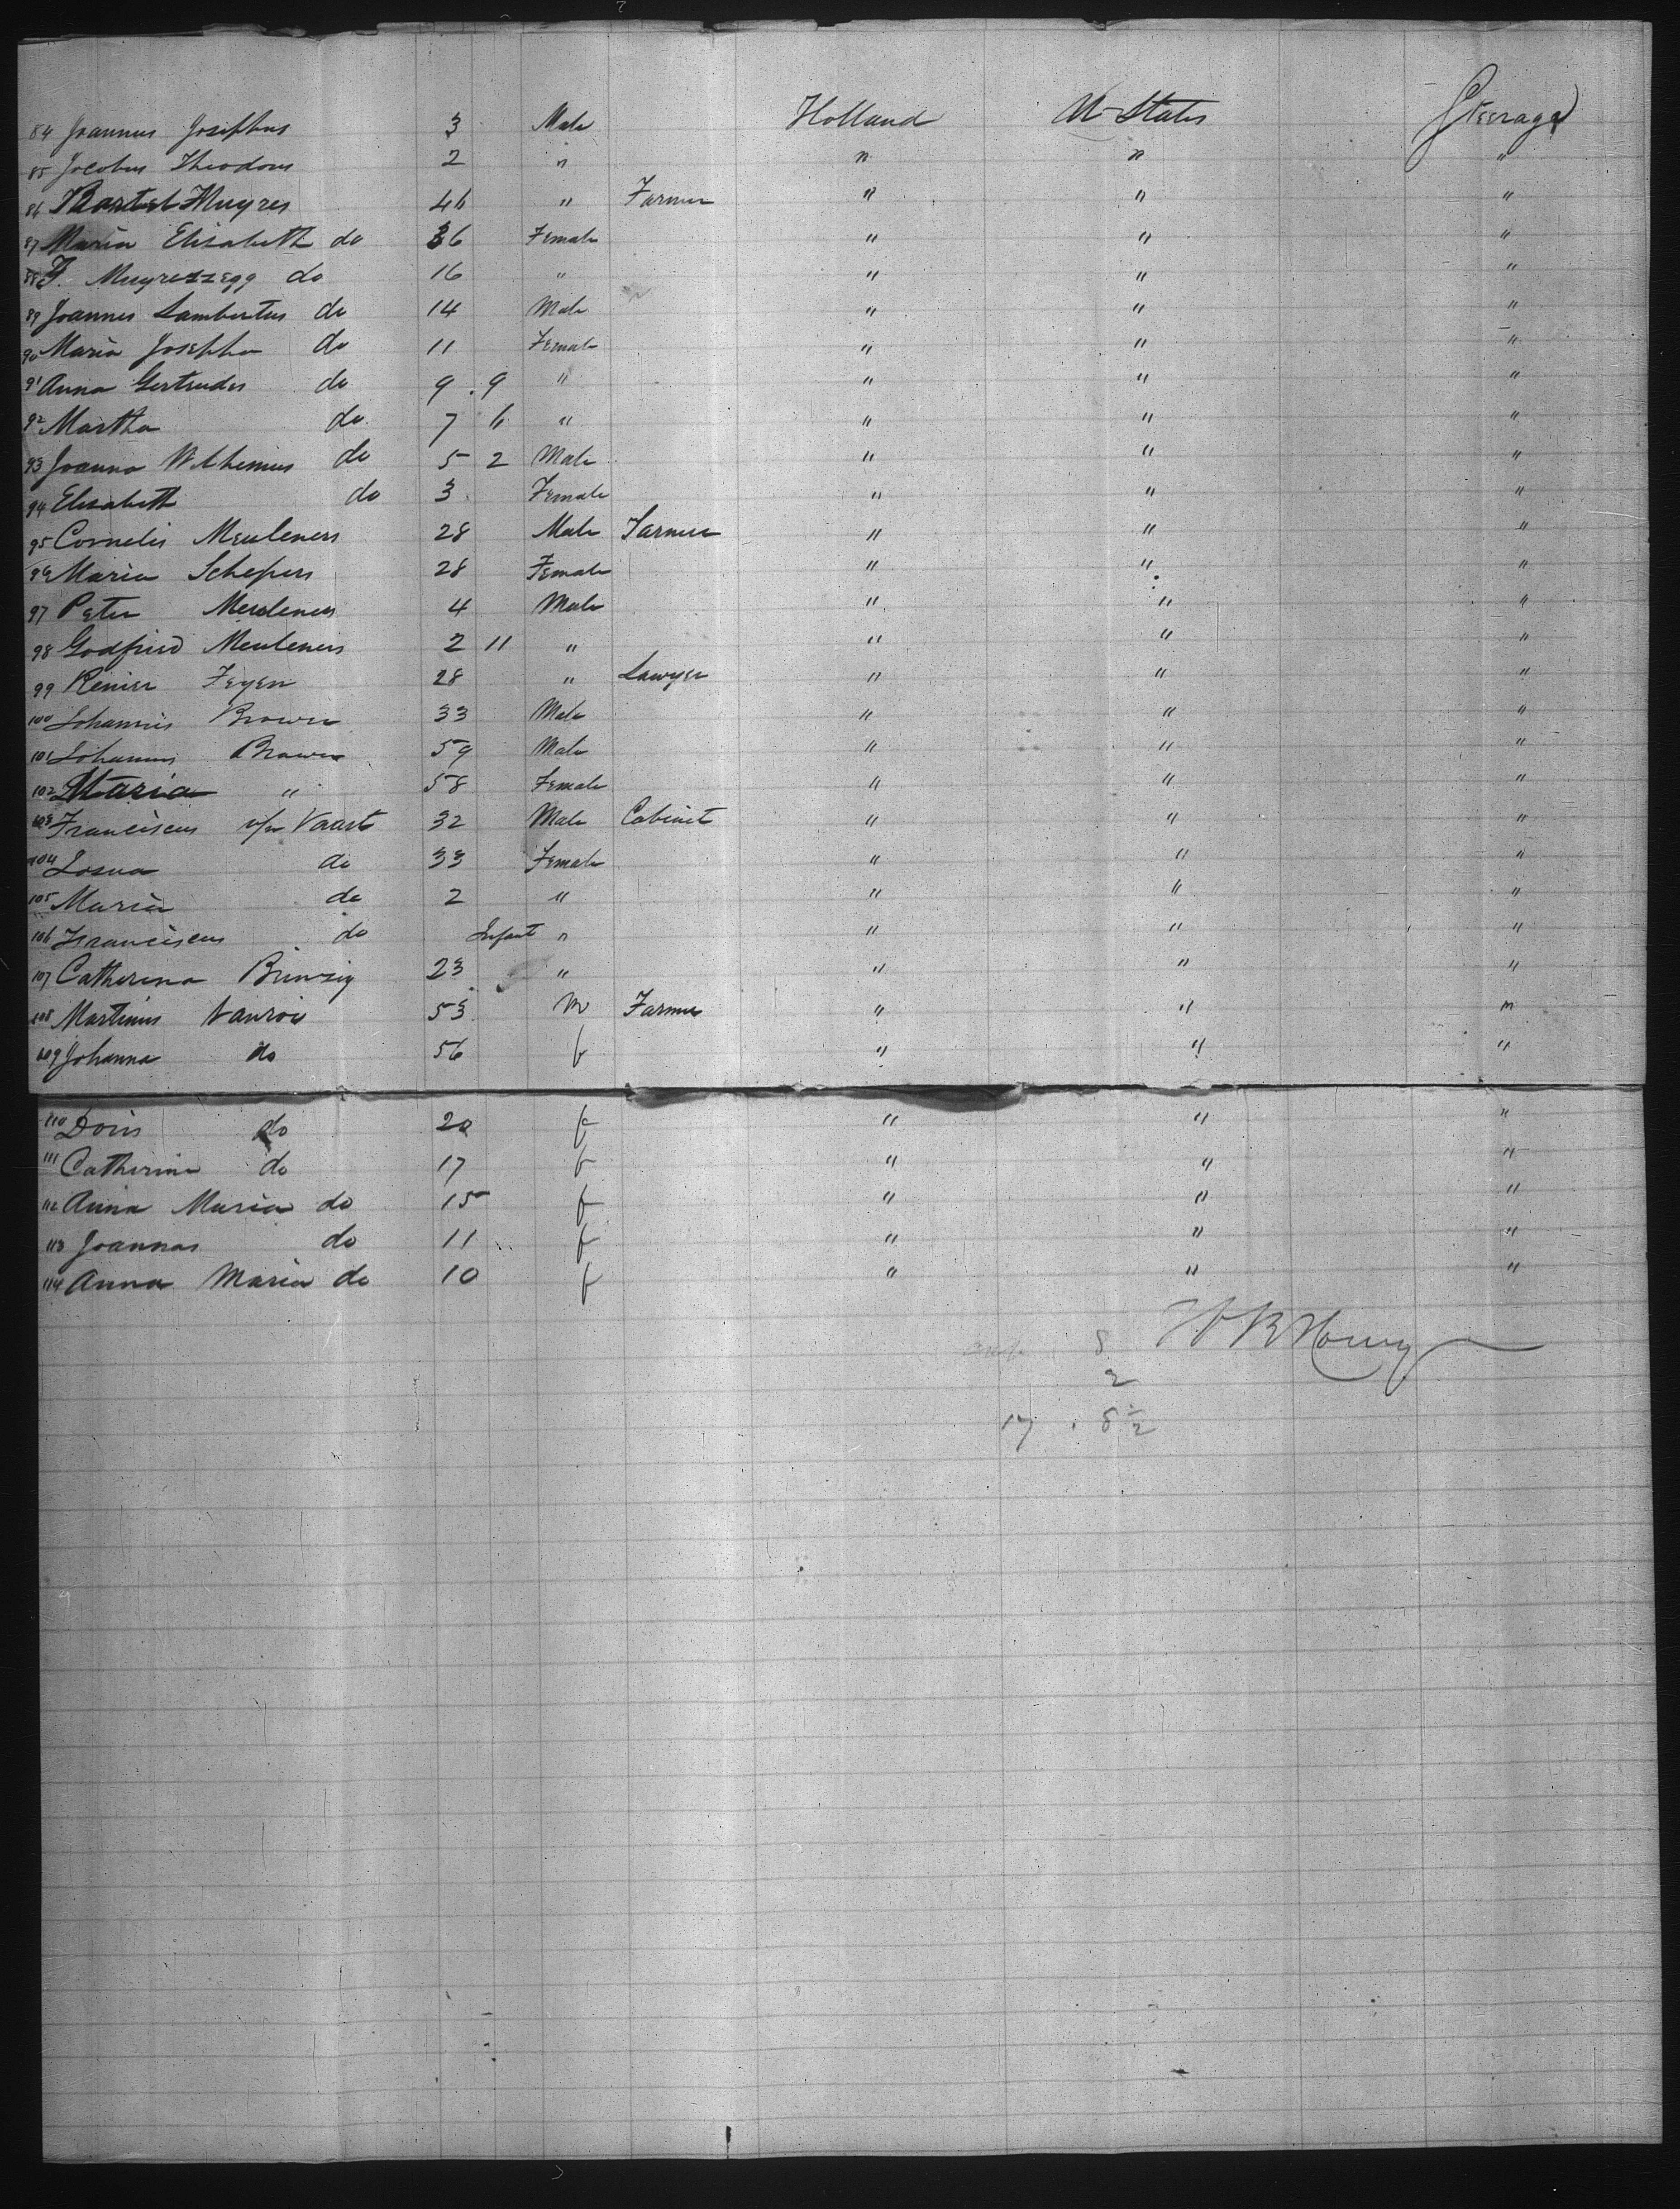 84 Joannus Josephus 3 Male Holland U States Steerage
85 Jocobus Theodorus 2 " " " "
86 Bartel Muyres 46 " Farmer " " "
87 Maria Elisabeth do 36 Female " " "
88 F. Muyreszegg do 16 " " " "
89 Joannes Lambertus do 14 Male " " "
90 Maria Josepha do 11 Female " " "
91 Anna Gertrudes do 9 . 9 " " " "
92 Martha do 7 6 " " " "
93 Joanna Wilhemus do 5 2 Male " " "
94 Elisabeth do 3 Female " " "
95 Cornelis Meuleners 28 Male Farmer " " "
96 Maria Schepers 28 Female " " "
97 Peter Meuleners 4 Male " " "
98 Godfried Meuleners 2 11 " " " "
99 Renier Feyen 28 " Sawyer " " "
100 Johannis Brower 33 Male " " "
101 Johannis Brower 59 Male " " "
102 Maria " 58 Female " " "
103 Franciscus v/n Vaart 32 Male Cabinet " " "
104 Losua do 33 Female " " "
105 Maria do 2 " " " "
106 Franciscus do Infant " " " "
107 Catherina 23 " " " "
108 Martinus Vanroi 53 M Farmer " " "
109 Johanna do 56 f " " "
110 Doris do 20 f " " "
111 Catherine do 17 f " " "
112 Anna Maria do 15 f " " "
113 Joannas do 11 f " " "
114 Anna Maria do 10 f " " "
8
2
17 . 8 1/2